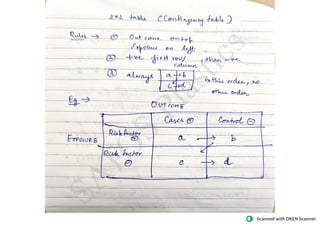 2×2 table (Contingency table)
Rules → ① Outcome on top
Exposure on left
② +ive first row/column, then -ive
③ always a → b
c → d
in this order, no other order
Eg →
OUTCOME
Cases ⊕ Control ⊖
EXPOSURE
Risk Factor ⊕ a → b
Risk Factor ⊖ c → d
Scanned with OKEN Scanner